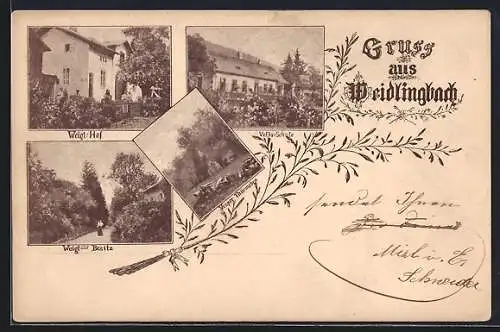 Gruss
aus
Weidlingbach
Weigl-Hof
Volks-Schule
Weigl Besitz
sendet Ihnen
Schneider